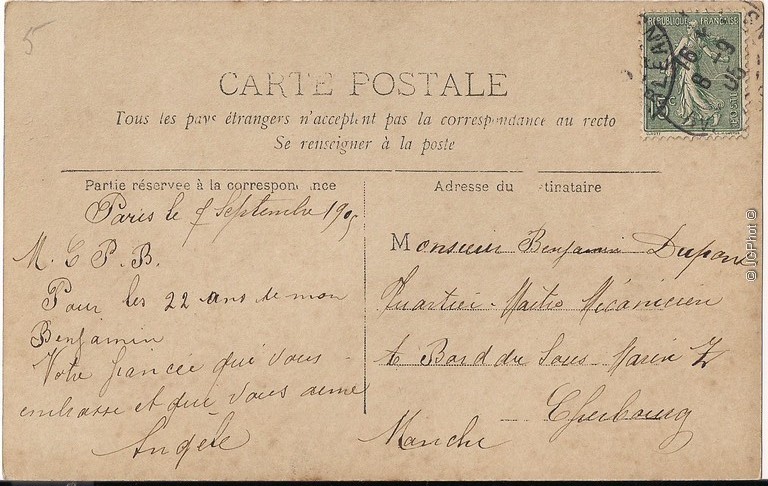 5
RÉPUBLIQUE FRANÇAISE
CARTE POSTALE
Tous les pays étrangers n'acceptent pas la correspondance au recto
Se renseigner à la poste
Partie réservée à la correspondance
Paris le 7 Septembre 1905
M. C P. B.
Pour les 22 ans de mon
Benjamin
Votre fiancée qui vous
embrasse et qui vous aime
Angèle
Adresse du tinataire
Monsieur Benjamin Dupont
Quartier-Maitre Mécanicien
à Bord du Sous-Marin Z
Cherbourg
Manche
© JGPhot ©